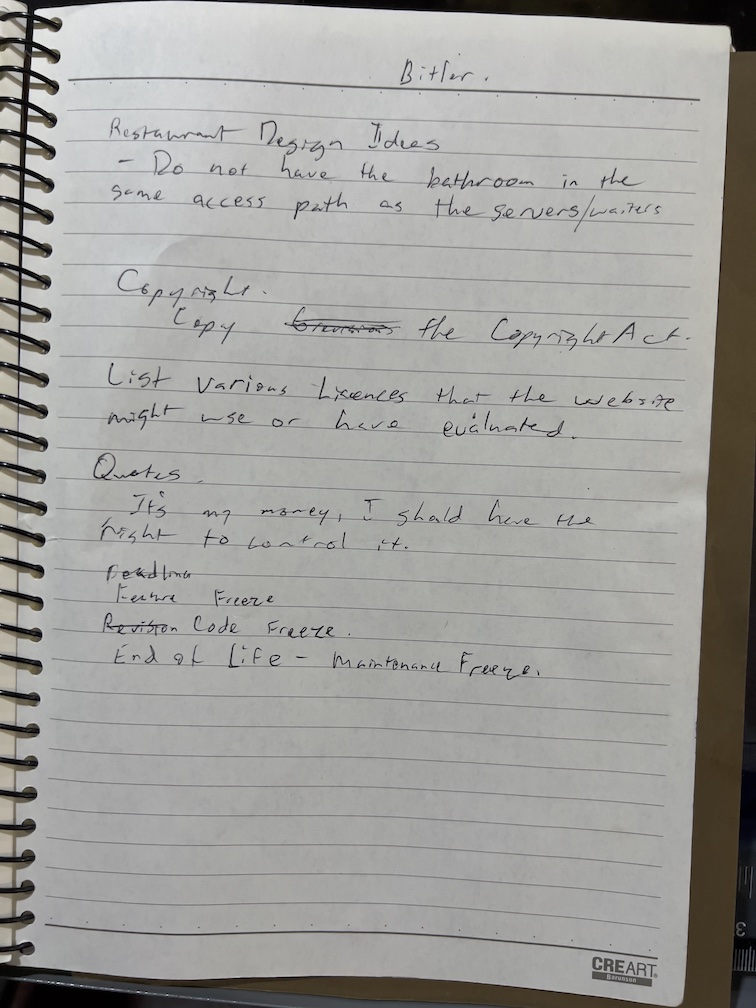 Bitler.
Restaurant Design Idees
- Do not have the bathroom in the
same access path as the servers/waiters
Copyright.
Copy the Copyright Act.
List various Licences that the website
might use or have evaluated.
Quotes
It's my money, I shald have the
right to control it.
Deadline
Feature Freeze
Revision Code Freeze.
End of Life - Maintenance Freeze.
CREART
3